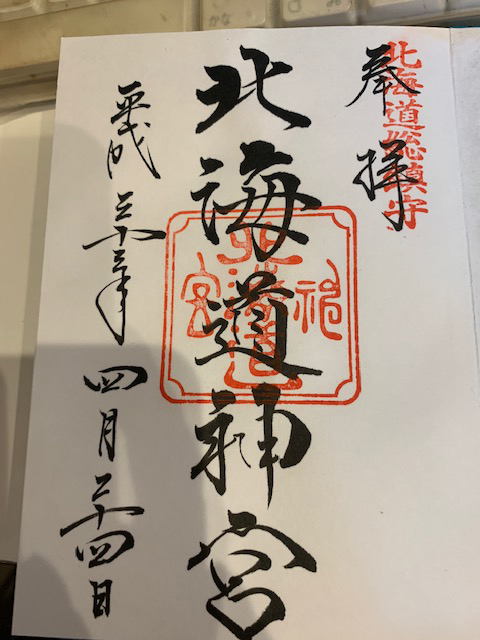 奉拝
北海道総鎮守
北海道神宮
北海道神宮
平成
年
四月二十四日